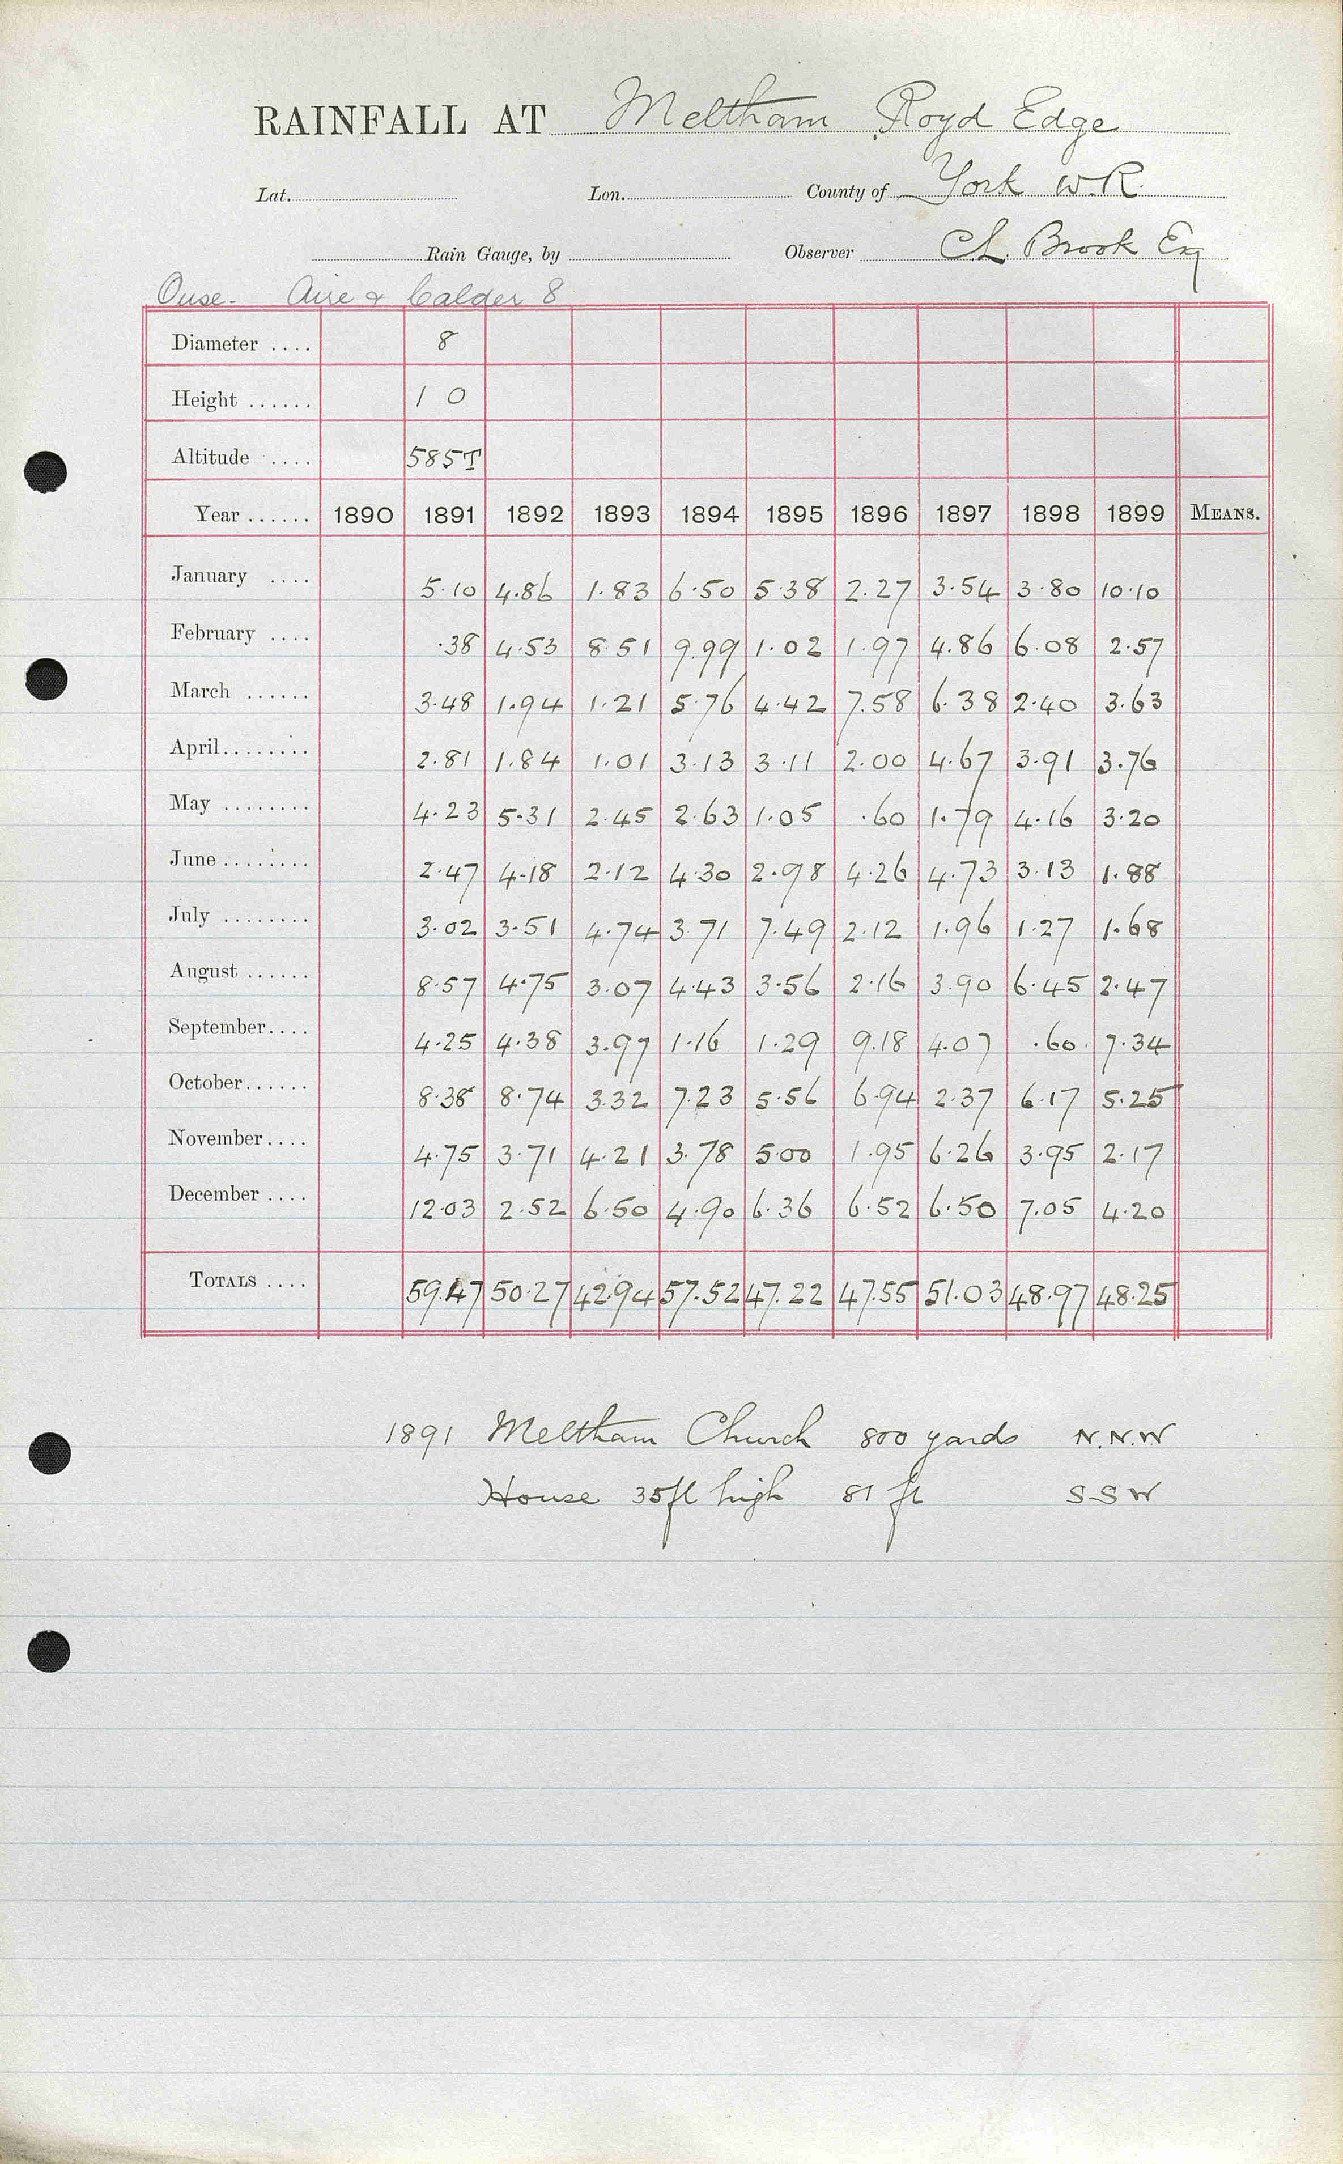 RAINFALL AT Meltham Royd Edge
Lat. Lon. County of York W.R.
Rain Gauge, by Observer Ch. Brook Esq
Ouse. Aire & Calder 8
Diameter .... 8
Height ...... 1 0
Altitude .... 585T
Year ...... 1890 1891 1892 1893 1894 1895 1896 1897 1898 1899 MEANS.
January .... 5.10 4.86 1.83 6.50 5.38 2.27 3.54 3.80 10.10
February .... .38 4.53 8.51 9.99 1.02 1.97 4.86 6.08 2.57
March ...... 3.48 1.94 1.21 5.76 4.42 7.58 6.38 2.40 3.63
April........ 2.81 1.84 1.01 3.13 3.11 2.00 4.67 3.91 3.76
May ........ 4.23 5.31 2.45 2.63 1.05 .60 1.79 4.16 3.20
June ........ 2.47 4.18 2.12 4.30 2.98 4.26 4.73 3.13 1.88
July ........ 3.02 3.51 4.74 3.71 7.49 2.12 1.96 1.27 1.68
August ...... 8.57 4.75 3.07 4.43 3.56 2.16 3.90 6.45 2.47
September.... 4.25 4.38 3.97 1.16 1.29 9.18 4.07 .60 7.34
October...... 8.38 8.74 3.32 7.23 5.56 6.94 2.37 6.17 5.25
November.... 4.75 3.71 4.21 3.78 5.00 1.95 6.26 3.95 2.17
December .... 12.03 2.52 6.50 4.90 6.36 6.52 6.50 7.05 4.20
TOTALS .... 59.47 50.27 42.94 57.52 47.22 47.55 51.03 48.97 48.25
1891 Meltham Church 800 yards N.N.W
House 35ft high 81 ft SSW